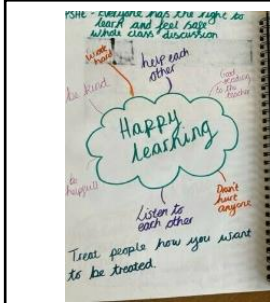 PSHE - Everyone has the right to
learn and feel safe
Whole class discussion
Work
hard
help each
other
Good
listening
to the
teacher
be kind
Happy
learning
be
helpful
Listen to
each other
Don't
hurt
anyone
Treat people how you want
to be treated.